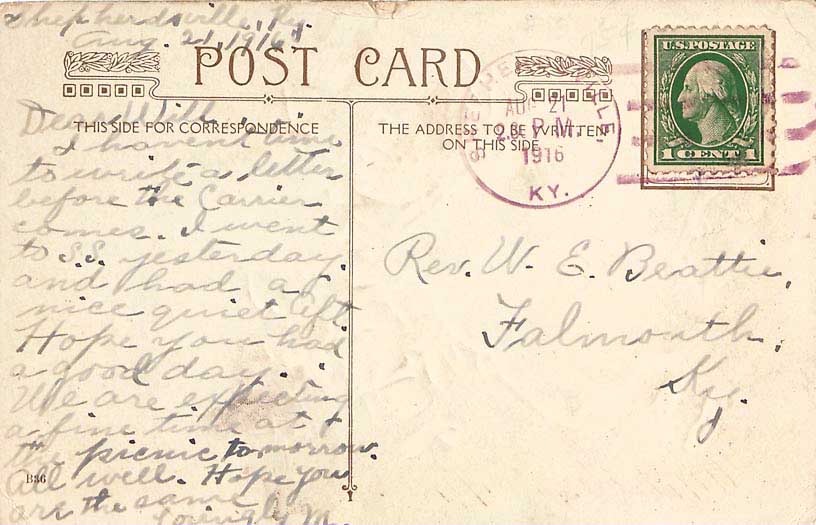 Shepherdsville, Ky.
Aug. 21, 1916
POST CARD
THIS SIDE FOR CORRESPONDENCE
Dear Will,
I haven't time
to write a letter
before the Carrier
comes. I went
to S.S. yesterday
and had a
nice quiet aft.
Hope you had
a good day.
We are expecting
a fine time at
the picnic tomorrow.
All well. Hope you
are the same
Lovingly
B36
THE ADDRESS TO BE WRITTEN
ON THIS SIDE
AUG 21
P.M.
1916
KY.
U.S. POSTAGE
1 CENT 1
Rev. W. E. Beattie,
Falmouth,
Ky.